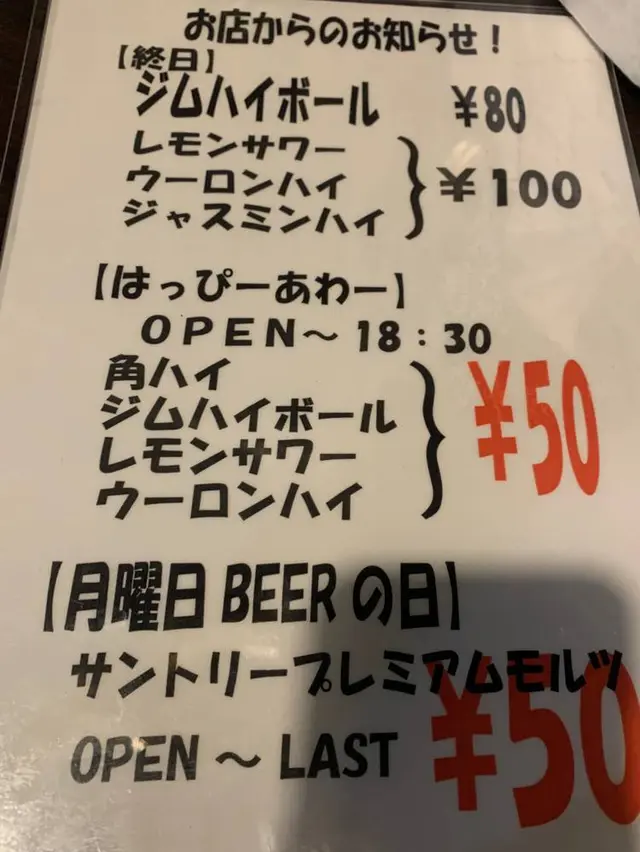 お店からのお知らせ！
【終日】
ジムハイボール ￥80
レモンサワー
ウーロンハイ
ジャスミンハイ
} ￥100
【はっぴーあわー】
OPEN～18：30
角ハイ
ジムハイボール
レモンサワー
ウーロンハイ
} ￥50
【月曜日 BEER の日】
サントリープレミアムモルツ
OPEN ～ LAST ￥50